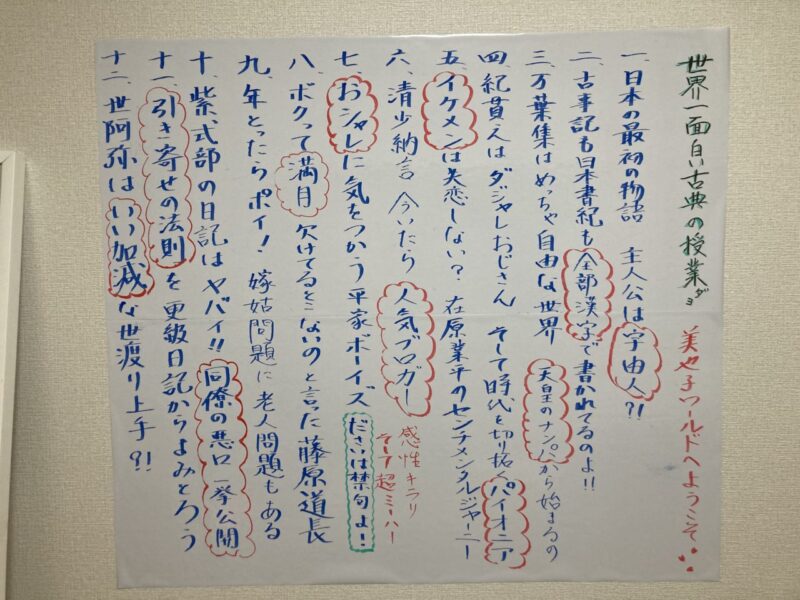 世界一面白い古典の授業ダヨ
美也子ワールドへようこそ
一、日本の最初の物語 主人公は宇宙人?!
二、古事記も日本書紀も全部漢字で書かれてるのよ!!
三、万葉集はめっちゃ自由な世界 天皇のナンパから始まるの
四、紀貫えはダジャレおじさん そして時代を切り拓くパイオニア
五、イケメンは失恋しない? 在原業平のセンチメンタルジャーニー
六、清少納言 今いたら人気ブロガー
感性キラリ
そして超ミーハー
七、おシャレに気をつかう平家ボーイズ ださいは禁句よ!
八、ボクって満月 欠けてるとこないのと言った藤原道長
九、年とったらポイ! 嫁姑問題に老人問題もある
十、紫式部の日記はヤバイ!! 同僚の悪口一挙公開
十一、引き寄せの法則を更級日記からよみとろう
十二、世阿弥はいい加減な世渡り上手?!